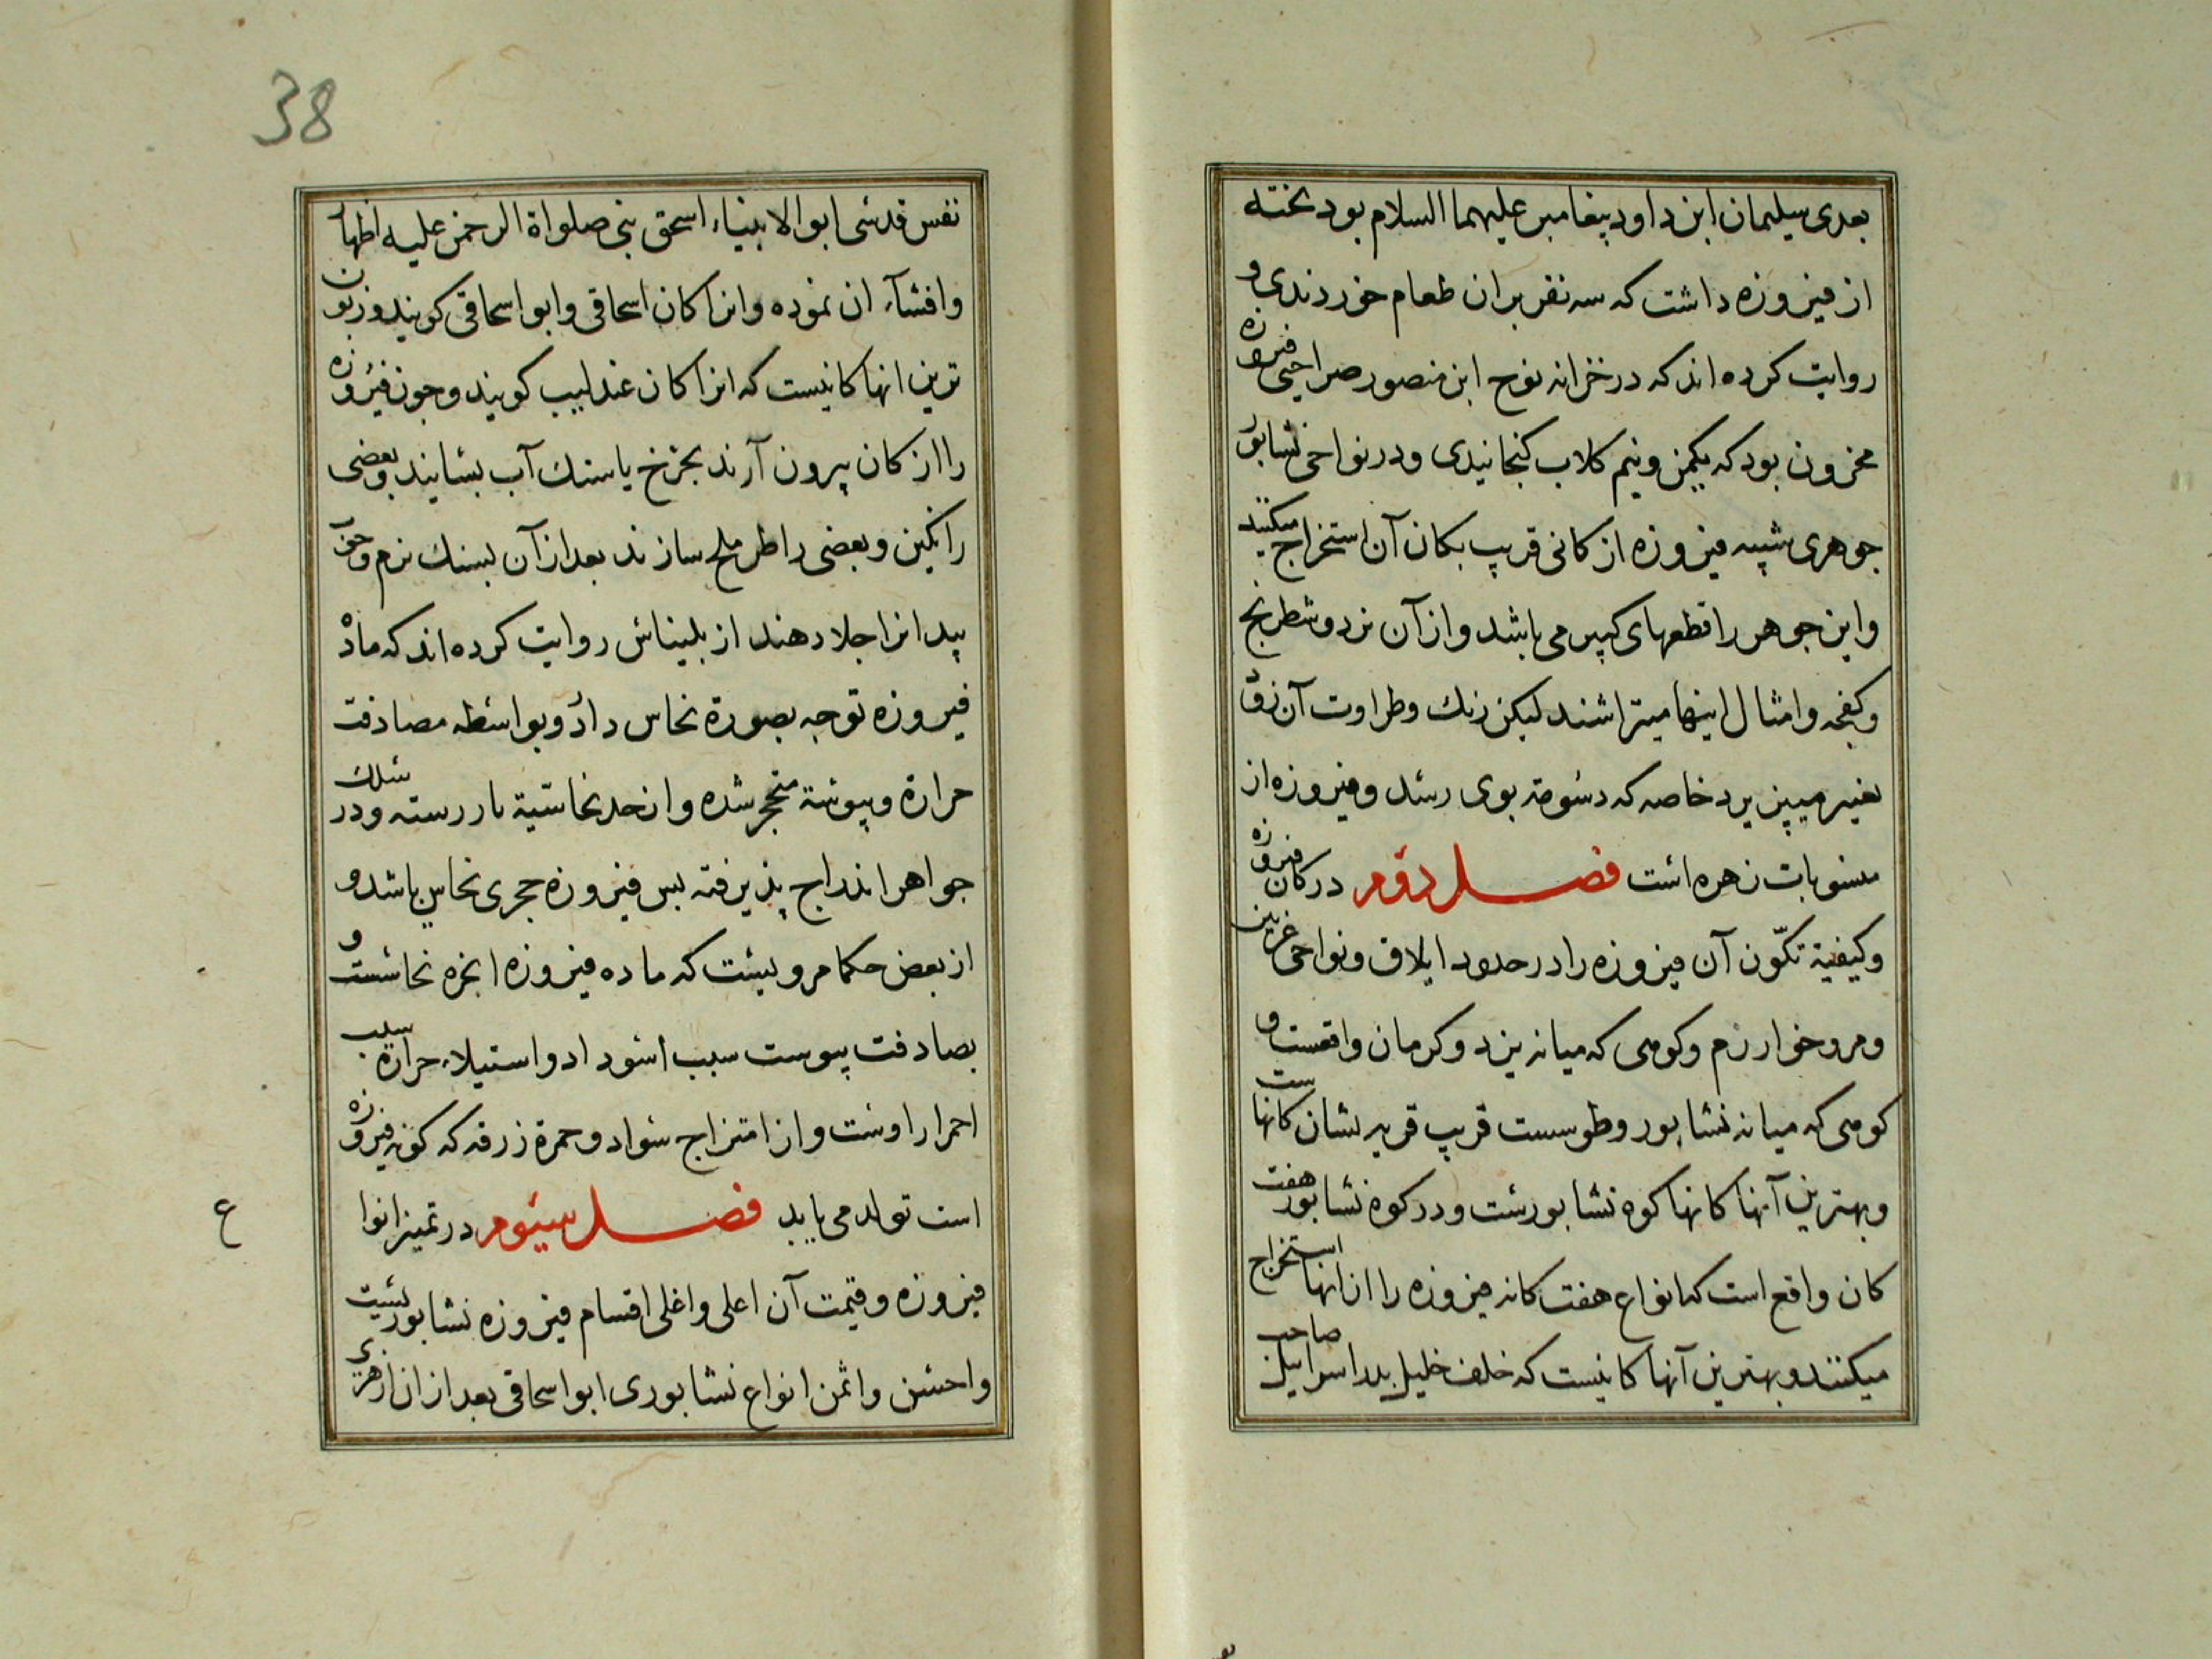 بعدی سلیمان ابن داود پیغامبر علیهما السلام بود تخته
از فیروزه داشت که سه نفر بران طعام خوردندی و
روایت کرده اند که در خزانه نوح ابن منصور صراحی فیروزه
مخزون بود که یکمن و نیم کلاب کنجانیدی و در نواحی نشابور
جوهری شبیه فیروزه از کانی قریب بکان آن استخراج میکنند
و این جوهر را قطعهای کبیر می باشد و از آن نرد و شطرنج
و کفچه و امثال اینها میتراشند لیکن رنك و طراوت آن زود
تغییر میپزیرد خاصه که دسومة بوی رسد و فیروزه از
منسوبات زهره است فصل دوم در کان فیروزه
و کیفیة تکوّن آن فیروزه را در حدود ایلاق و نواحی غزنین
و مرو خوارزم و کوهی که میانه یزد و کرمان واقعست و
کوهی که میانه نشابور و طوسست قریب قریه بشان کانهاست
و بهترین آنها کانها کوه نشابورست و در کوه نشابور هفت
کان واقع است که انواع هفت کانه فیروزه را از انها استخراج
میکنند و بهترین آنها کانیست که خلف خلیل پدر اسراییل صاحب
38
نفس قدسی ابو الانبیاء اسحق نبی صلواة الرحمن علیه اظهار
و افشاء ان نموده و انرا کان اسحاقی و ابو اسحاقی کویند و زبون
ترین انها کانیست که انرا کان عندلیب کویند و جون فیروزه
را از کان بیرون آرند بجرخ یا سنك آب بسایند و بعضی
را نکین و بعضی را طرملح سازند بعد از آن بسنك نرم و جوب
بید انرا جلا دهند از بلیناس روایت کرده اند که ماده
فیروزه توجه بصورة نحاس دارد و بواسطه مصادفت
حرارة و یبوسة متحجر شده و از حد نحاسیة باز رسته و در سلك
جواهر اندراج پذیرفته بس فیروزه حجری نحاسی باشد و
از بعض حکما مرویست که ماده فیروزه ابخره نحاسست و
بصادفت یبوست سبب اسوداد و استیلاء حرارة سبب
احمرار اوست و از امتزاج سواد و حمرة زرقه که کونه فیروزه
است تولد می یابد فصل سیوم در تمیز انوا
ع
فیروزه و قیمت آن اعلی و اغلی اقسام فیروزه نشابوریست
و احسن و اثمن انواع نشابوری ابو اسحاقی بعد از ان ازهری